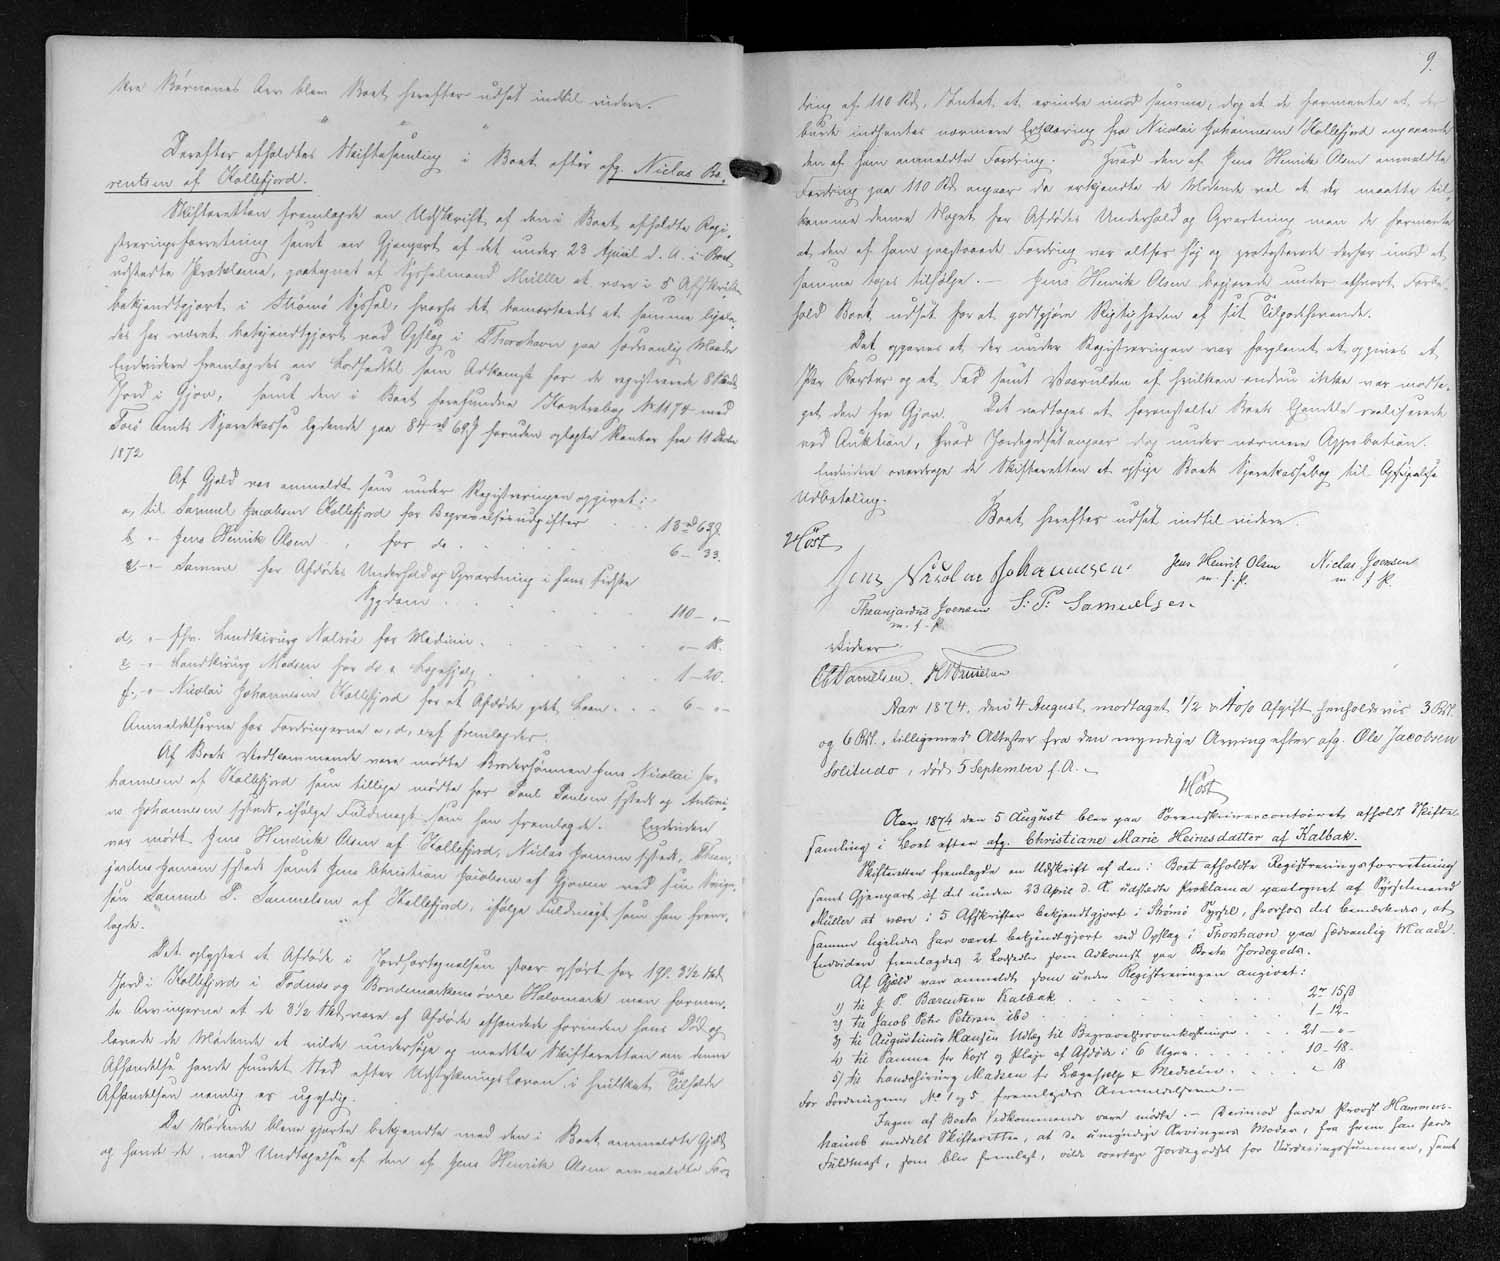 kre Børnenes Arv blev Boet herefter udsat indtil videre.
Derefter afholdtes Skiftesamling i Boet efter afg. Niclas Be-
rentsen af Kollefjord.
Skifteretten fremlagde en Udskrift af den i Boet afholdte Regi-
streringsforretning samt en Gjenpart af det under 23 April d. A. i Boet
udstedte Proklama, paategnet af Sysselmand Müller at være i 5 Afskrifter
bekjendtgjort i Strømø Syssel, hvorhos det bemærkedes at samme ligele-
des har været bekjendtgjort ved Opslag i Thorshavn paa sædvanlig Maade
Endvidere fremlagdes en Lodseddel som Adkomst for de registrerede 8 Skind
Jord i Gjov, samt den i Boet forefundne Kontrabog No 1174 med
Færø Amts Sparekasse lydende paa 84 rd 69 β foruden oplagte Renter fra 11 Decbr
1872
Af Gjæld var anmeldt som under Registreringen opgivet:
a, til Samuel Jacobsen Kollefjord for Begravelsesudgifter . . 13 rd 63 β.
b " Jens Henrik Olsen . , for do . . . . . 6 - 33.
c - " Samme for Afdødes Underhold og Opvartning i hans sidste
Sygdom . . . . . . 110 - " -
d, - " fhv. Landkirurg Nolsøe for Medicin . . . . . " - 18.
e, - " Landkirurg Madsen for do & Lægehjælp . . . . 1 - 20.
f, - " Nicolai Johannesen Kollefjord for et Afdøde ydet Laan . . . 6 - " -
Anmeldelserne for Fordringerne a, d, e & f fremlagdes.
Af Boets Vedkommende vare mødte Brodersønnen Jens Nicolai Jo-
hannesen af Kollefjord som tillige mødte for Poul Poulsen sstds og Antoni-
us Johannesen sstds, ifølge Fuldmagt som han fremlagde. Endvidere
var mødt Jens Hendrik Olsen af Kollefjord, Niclas Joensen sstds, Thean-
jardus Joensen sstds samt Jens Christian Jacobsen af Gjoven ved sin Sviger-
søn Samuel P. Samuelsen af Kollefjord, ifølge Fuldmagt som han frem-
lagde.
Det oplystes at Afdøde i Jordfortegnelsen staar opført for 1 Gl. 3½ Skd
Jord i Kollefjord i Todnes og Bondemarkens øvre Halvmark men formen-
te Arvingerne at de 3½ Skd vare af Afdøde afhændede forinden hans Død og
lovede de Mødende at ville undersøge og meddele Skifteretten om denne
Afhændelse havde fundet Sted efter Udstykningsloven, i hvilket Tilfælde
Afhændelsen nemlig er ugyldig.
De Mødende bleve gjorte bekjendte med den i Boet anmeldte Gjæld
og havde de, med Undtagelse af den af Jens Henrik Olsen anmeldte For-
9.
dring af 110 Rd, Intet at erindre imod samme, dog at de formente at der
burde indhentes nærmere Erklæring fra Nicolai Johannesen Kollefjord angaaende
den af ham anmeldte Fordring. Hvad den af Jens Henrik Olsen anmeldte
Fordring paa 110 Rd angaar da erkjendte de Mødende vel at der maatte til-
komme denne Noget for Afdødes Underhold og Opvartning men de formente
at den af ham paastaaede Fordring var altfor høj og protesterede derfor imod at
samme toges tilfølge. — Jens Henrik Olsen begjærede under ethvert Forbe-
hold Boet udsat for at godtgjøre Rigtigheden af sit Tilgodehavende.
Det opgaves at der under Registreringen var forglemt at opgives et
Par Karter og et Fad samt Vaaruld af hvilken endnu ikke var modta-
get den fra Gjov. Det vedtoges at foranstalte Boets Ejendele realiserede
ved Auktion, hvad Jordegodset angaar dog under nærmere Approbation.
Endvidere overdroges de Skifteretten at opsige Boets Sparekassebog til
Udbetaling.
Boet herefter udsat indtil videre.
Høst
Jens Nicolai Johannesen. Jens Henrik Olsen Niclas Joensen
m. f. P. m f P.
Theanjardus Joensen S: P: Samuelsen.
m. f. P.
Vidner
Danielsen.
Aar 1874, den 4 August, modtaget ½ & 4 o/o Afgift henholdsvis 3 Rd.
og 6 Rd., tilligemed Attester fra den myndige Arving efter afg. Ole Jacobsen
Solitudo, død 5 September f. A. —
Høst
Aar 1874 den 5 August blev paa Sorenskrivercontoiret afholdt Skifte-
samling i Boet efter afg. Christiane Marie Heinesdatter af Kalbak.
Skifteretten fremlagde en Udskrift af den i Boet afholdte Registreringsforretning
samt Gjenpart af det under 23 April d. A. udstedte Proklama paategnet af Sysselmand
Müller at være i 5 Afskrifter bekjendtgjort i Strømø Syssel, hvorhos det bemærkedes, at
samme ligeledes har været bekjendtgjort ved Opslag i Thorshavn paa sædvanlig Maade.
Endvidere fremlagdes 2 Lodsedler som Adkomst paa Boets Jordegods.
Af Gjæld var anmeldt som under Registreringen angivet:
1) til J. P. Bærentsen Kalbak . . . . . . 2 rd 15 β
2) til Jacob Petr. Petersen ibd . . . . . . 1 - 12 -
3) til Augustinus Hansen Udlæg til Begravelsesomkostninger . . . 21 - " -
4) til Samme for Kost og Pleje af Afdøde i 6 Uger . . . . . 10 - 48 -
5) til Landchirurg Madsen for Lægehjælp & Medicin . . . . " 18
For Fordringerne No 1 og 5 fremlagdes Anmeldelserne. —
Ingen af Boets Vedkommende vare mødte. — Derimod havde Provst Hammers-
haimb meddelt Skifteretten, at de umyndige Arvingers Moder, fra hvem han havde
Fuldmagt, som blev fremlagt, vilde overtage Jordegodset for Vurderingssummen, samt